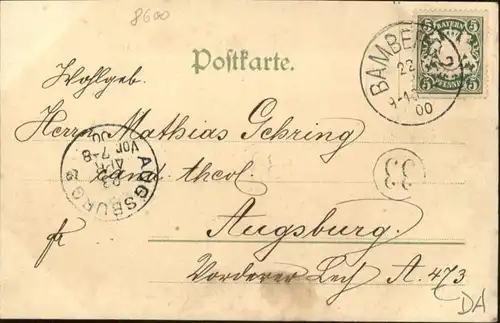 8600
Postkarte.
BAYERN
5 5
5 5
PFENNIG
BAMBERG
22
9-10
00
Wohlgeb.
Herrn Mathias Gehring
cand. theol.
Augsburg.
Vorderer Lech A. 473
AUGSBURG
23
APR
Vor 7-8
00
33
DA